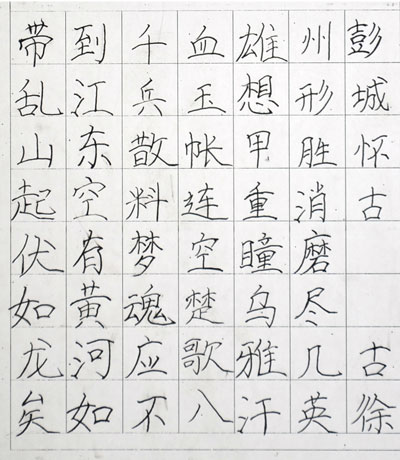 彭城怀古古徐
州形胜消磨尽几英
雄想甲重瞳乌雅汗
血玉帐连空楚歌八
千兵散料梦魂应不
到江东空有黄河如
带乱山起伏如龙矣